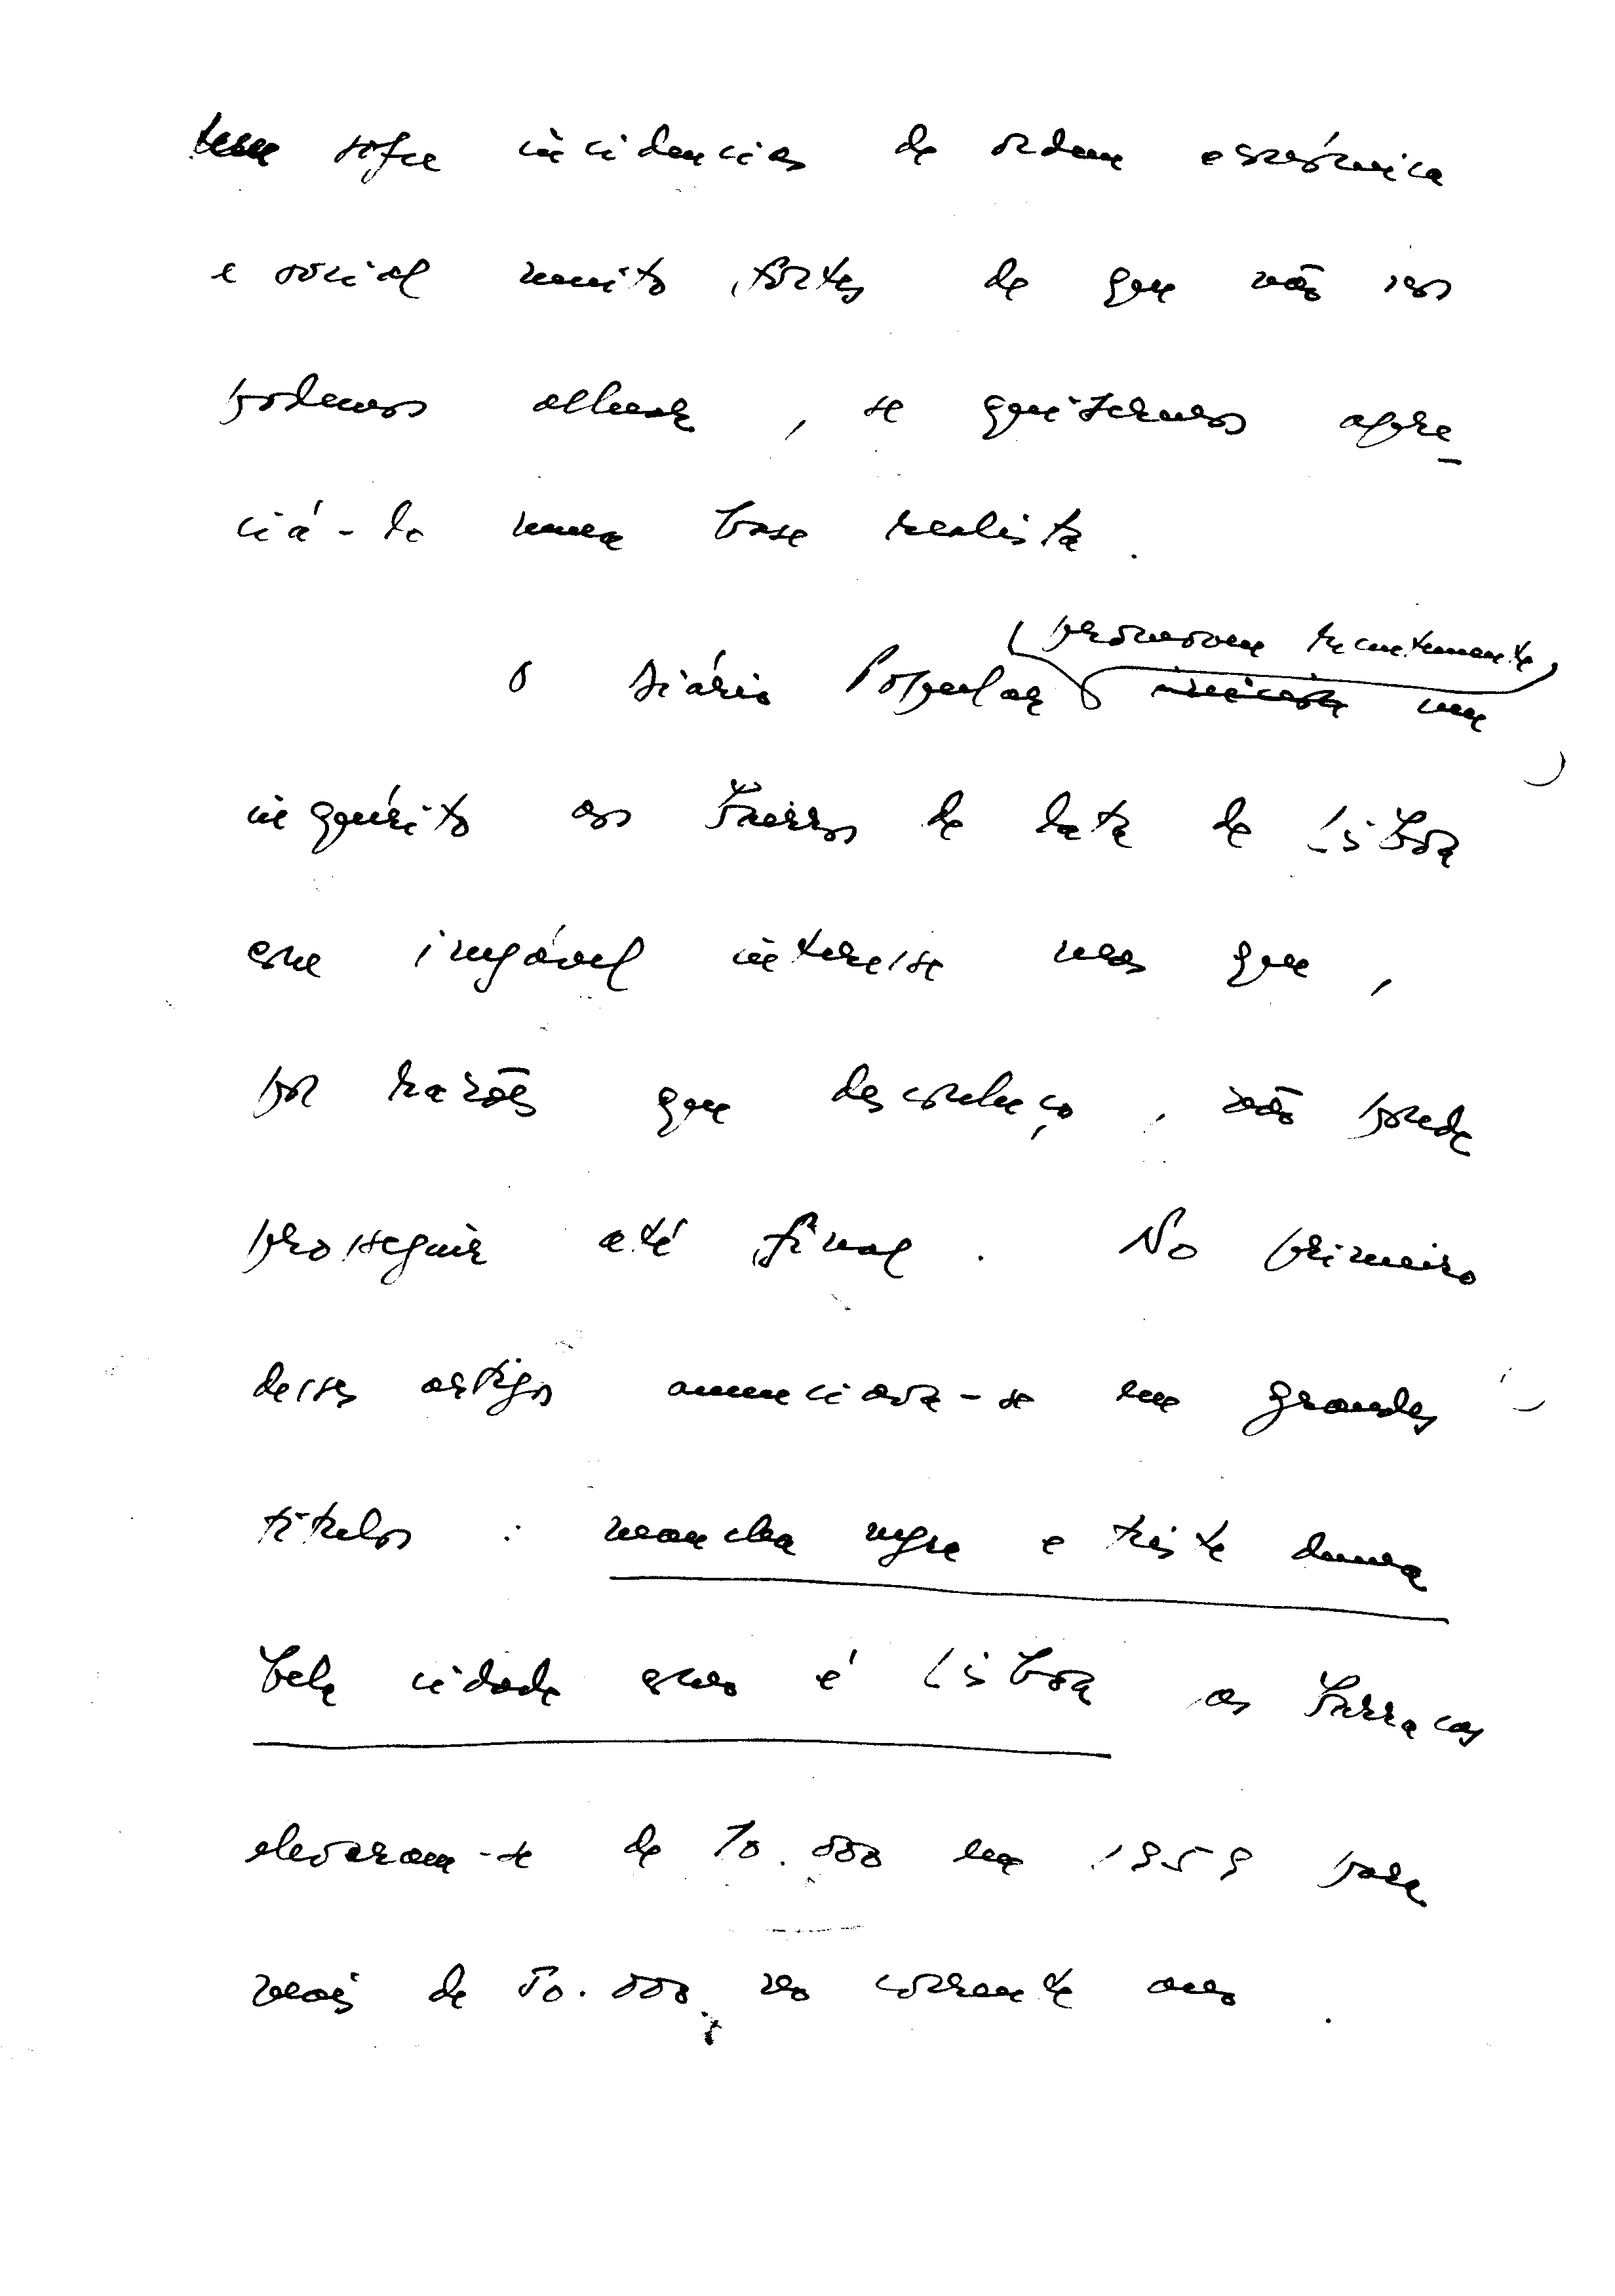 sofre incidencias de ordem económica
e social muito fortes de que não nos
podemos alhear, se quisermos apre-
ciá-lo numa base realista.
promoveu recentemente
O Diário Popular iniciou um
inquérito aos bairros de lata de Lisboa
com inegável interesse mas que,
por razões que desconheço, não poude
prosseguir até final. No primeiro
desses artigos anunciava-se em grandes
títulos: mancha negra e triste duma
bela cidade como é Lisboa os barracos
elevaram-se de 10.000 em 1959 para
mais de 50.000 no corrente ano.